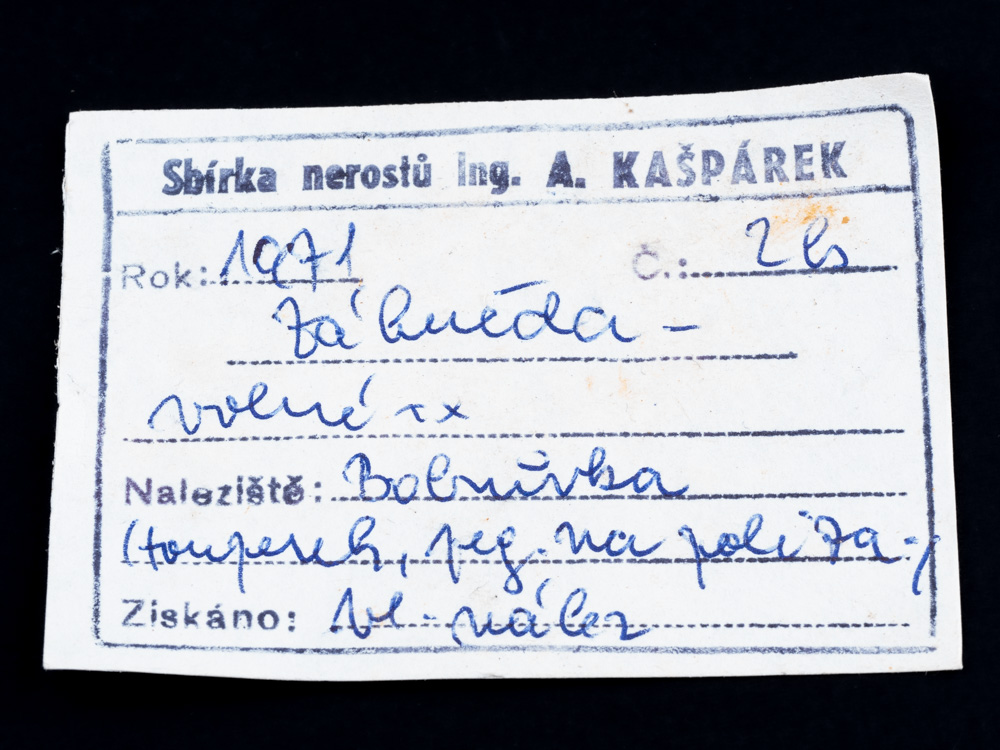 Sbírka nerostů Ing. A. KAŠPÁREK
Rok: 1971 Č.: 2
Záhněda -
volné xx
Naleziště: Bobrůvka
peg. na poli za
Získáno: vl. nález